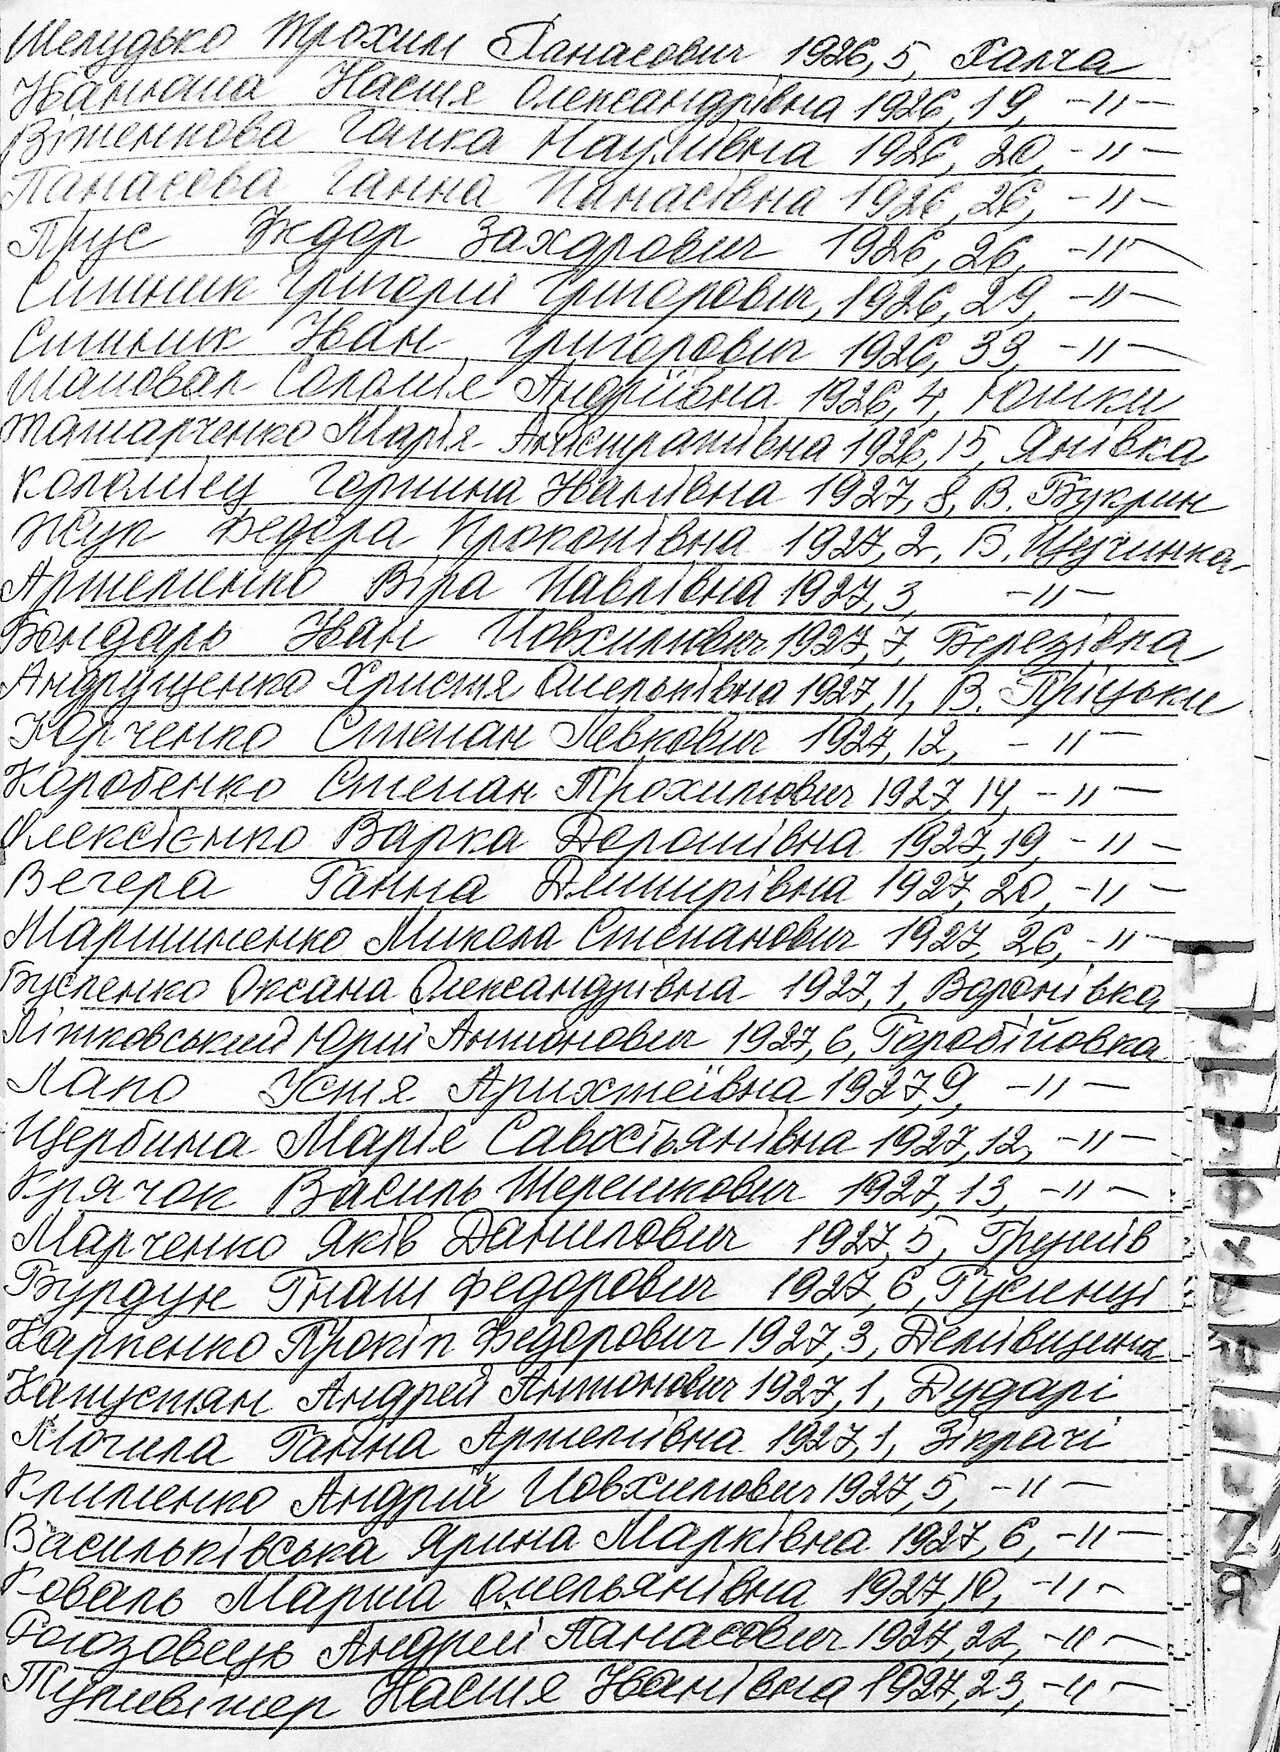 Шелудько Трохим Панасович 1926, 5, Халча
Іванюша Настя Олександрівна 1926, 19, -"-
Вітенкова Ганка Наумівна 1926, 20, -"-
Панасова Ганна Панасівна 1926, 26, -"-
Прус Федор Захарович 1926, 26, -"-
Ситник Григорій Григорович, 1926, 29, -"-
Ситник Іван Григорович 1926, 33, -"-
Шаповал Соломія Андріївна 1926, 4, Юшки
Татарченко Марія 1926, 15, Янівка
Коломієц Горпина Іванівна 1927, 8, В. Букрин
Жук Федора Прокопівна 1927, 2, Б. Щучинка
Артеменко Віра Павлівна 1927, 3, -"-
Бондарь Іван Йовхимович 1927, 7, Березівка
Андрущенко Христя Омельківна 1927, 11, В. Пріцьки
Юрченко Степан Левкович 1927, 12, -"-
Коробенко Степан Трохимович 1927, 14, -"-
Олексієнко Варка Дорошівна 1927, 19, -"-
Вечера Ганна Дмитрівна 1927, 20, -"-
Мартиненко Микола Степанович 1927, 26, -"-
Бусленко Оксана Олександрівна 1927, 1, Воронівка
Літковський Юрій Антонович 1927, 6, Горобійовка
Лапо Устя Арихтеївна 1927, 9, -"-
Щербина Марія Савостьянівна 1927, 12, -"-
Крячок Василь Терешкович 1927, 13, -"-
Марченко Яків Данилович 1927, 5, Грушів
Бурдун Гнат Федорович 1927, 6, Гусинці
Карпенко Прокіп Федорович 1927, 3, Демівщина
Капустян Андрей Антонович 1927, 1, Дударі
Могила Ганна Артемівна 1927, 1, Зікрачі
Клименко Андрій Йовхимович 1927, 5, -"-
Васильківська Ярина Марківна 1927, 6, -"-
Коваль Марина Омельянівна 1927, 10, -"-
Андрей Панасович 1927, 22, -"-
Настя Іванівна 1927, 23, -"-
Р
С
Т
У
Ф
Х
Я